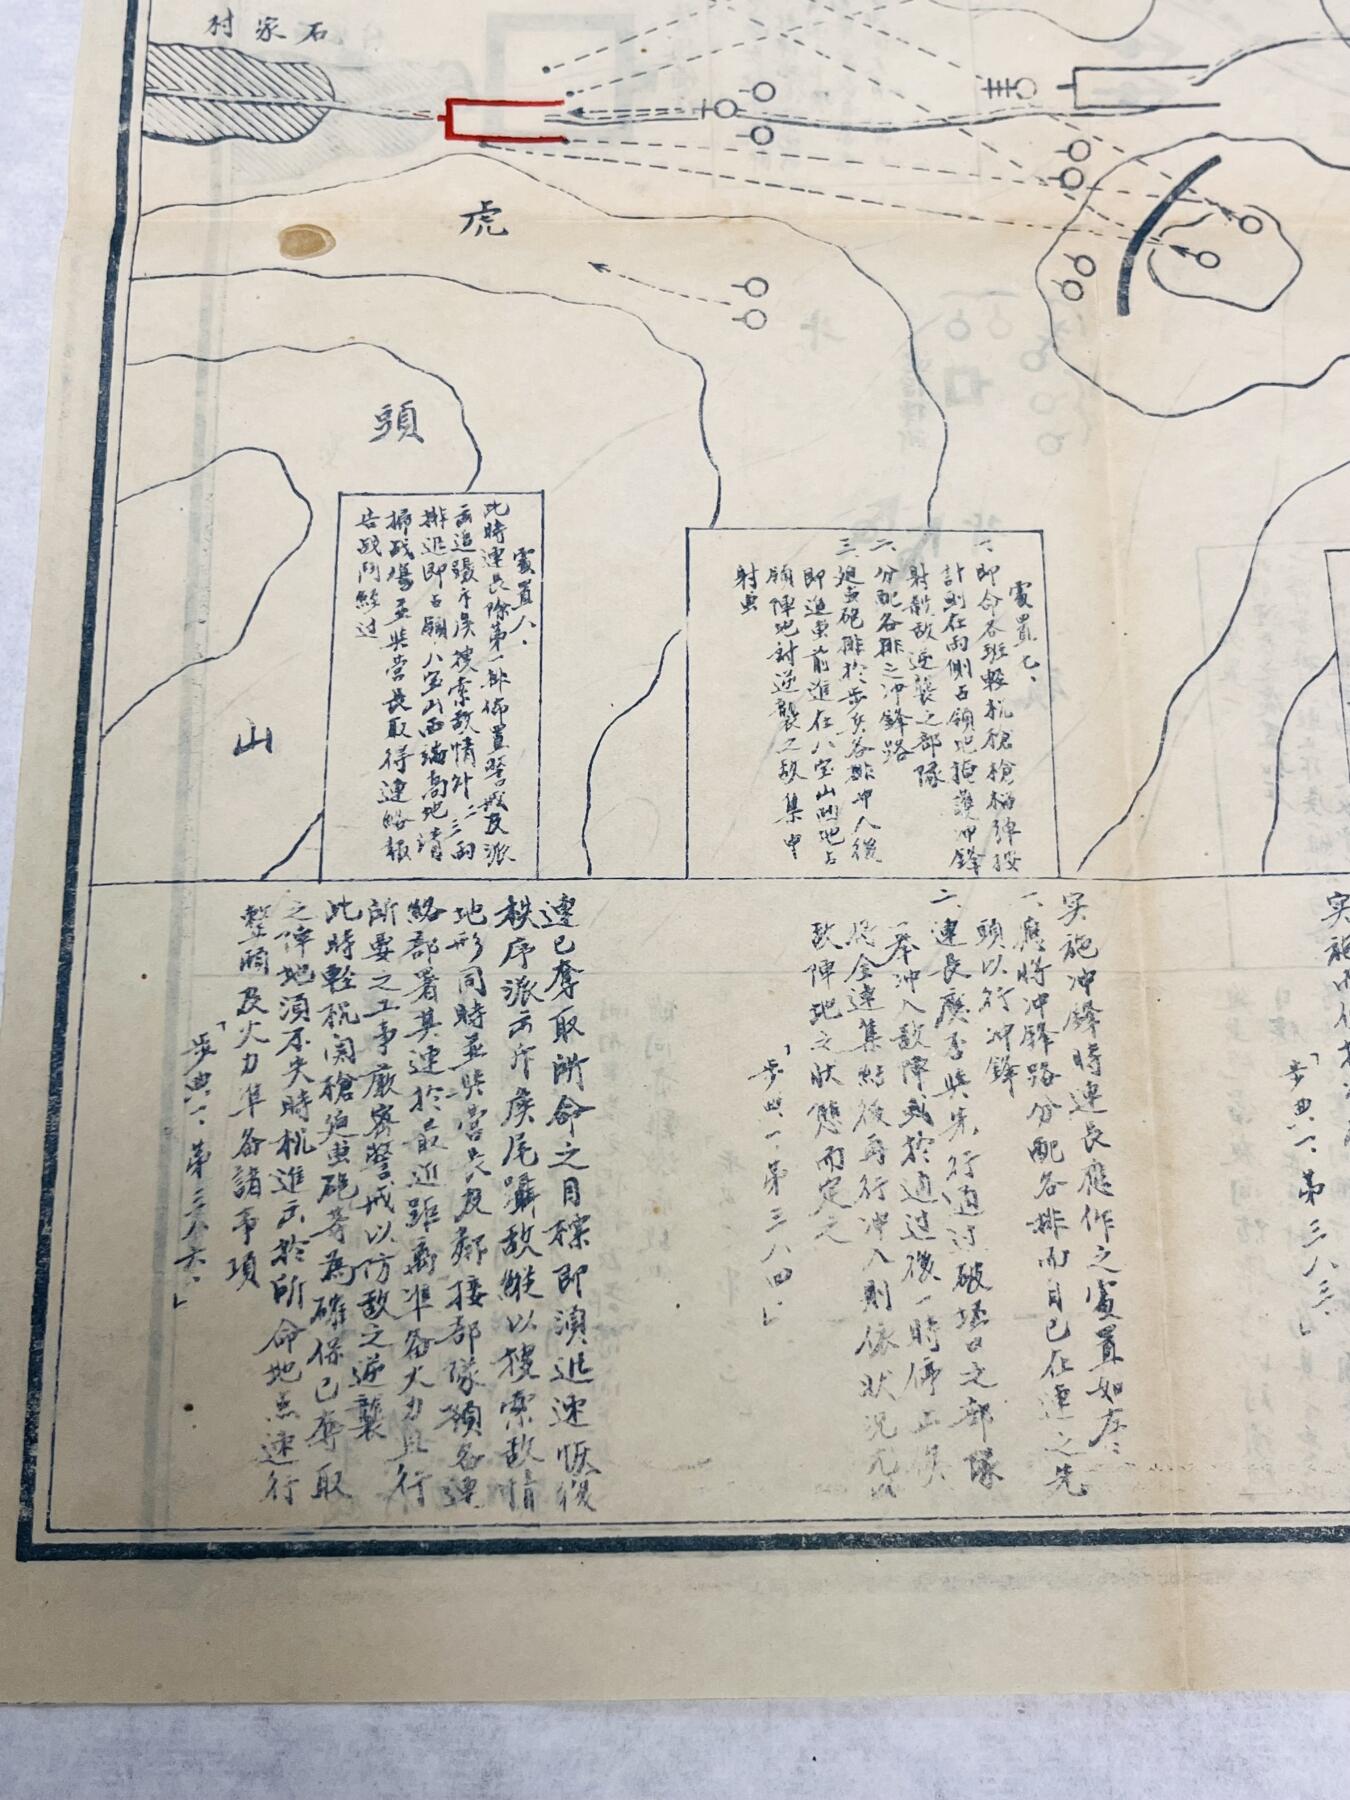 石家村
虎
頭
山
處置七、
一、即命各班輕机槍槍榴彈按
計則在兩側占領地掩護冲鋒
射散敌逆襲之部隊
二、分配各排之冲鋒路
三、迫击砲排於步兵各排冲入後
即進東前進在八宝山凹地占
領陣地討逆襲之敌集中
射击
處置八、
此時連長除第一排佈置警戒及派
出追踪斥侯搜索敌情外二三両
排迅即占領八宝山西端高地清
掃战場並與营長取得連絡報
告战鬥経过
实施
步典一、第三八三、」
实施冲鋒時連長應作之處置如左:
一、應將冲鋒路分配各排而自己在連之先
頭以行冲鋒
二、連長應否與先行通过破壞口之部隊
一举冲入敌陣或於通过後一時停止俟
將全連集結後再行冲入則依状况尤以
敌陣地之狀態而定之
「步典一、第三八四、」
連已奪取所命之目標即須迅速恢復
秩序派出斥侯尾躡敌縱以搜索敌情
地形同時並與营長及鄰接部隊預名連
絡部署其連於最近距离準备火力且行
所要之工事嚴密警戒以防敌之逆襲
此時輕机関槍迫击砲等為確保已奪取
之陣地須不失時机進出於所命地点速行
整頓及火力準备諸事項
「步典一、第三八六、」